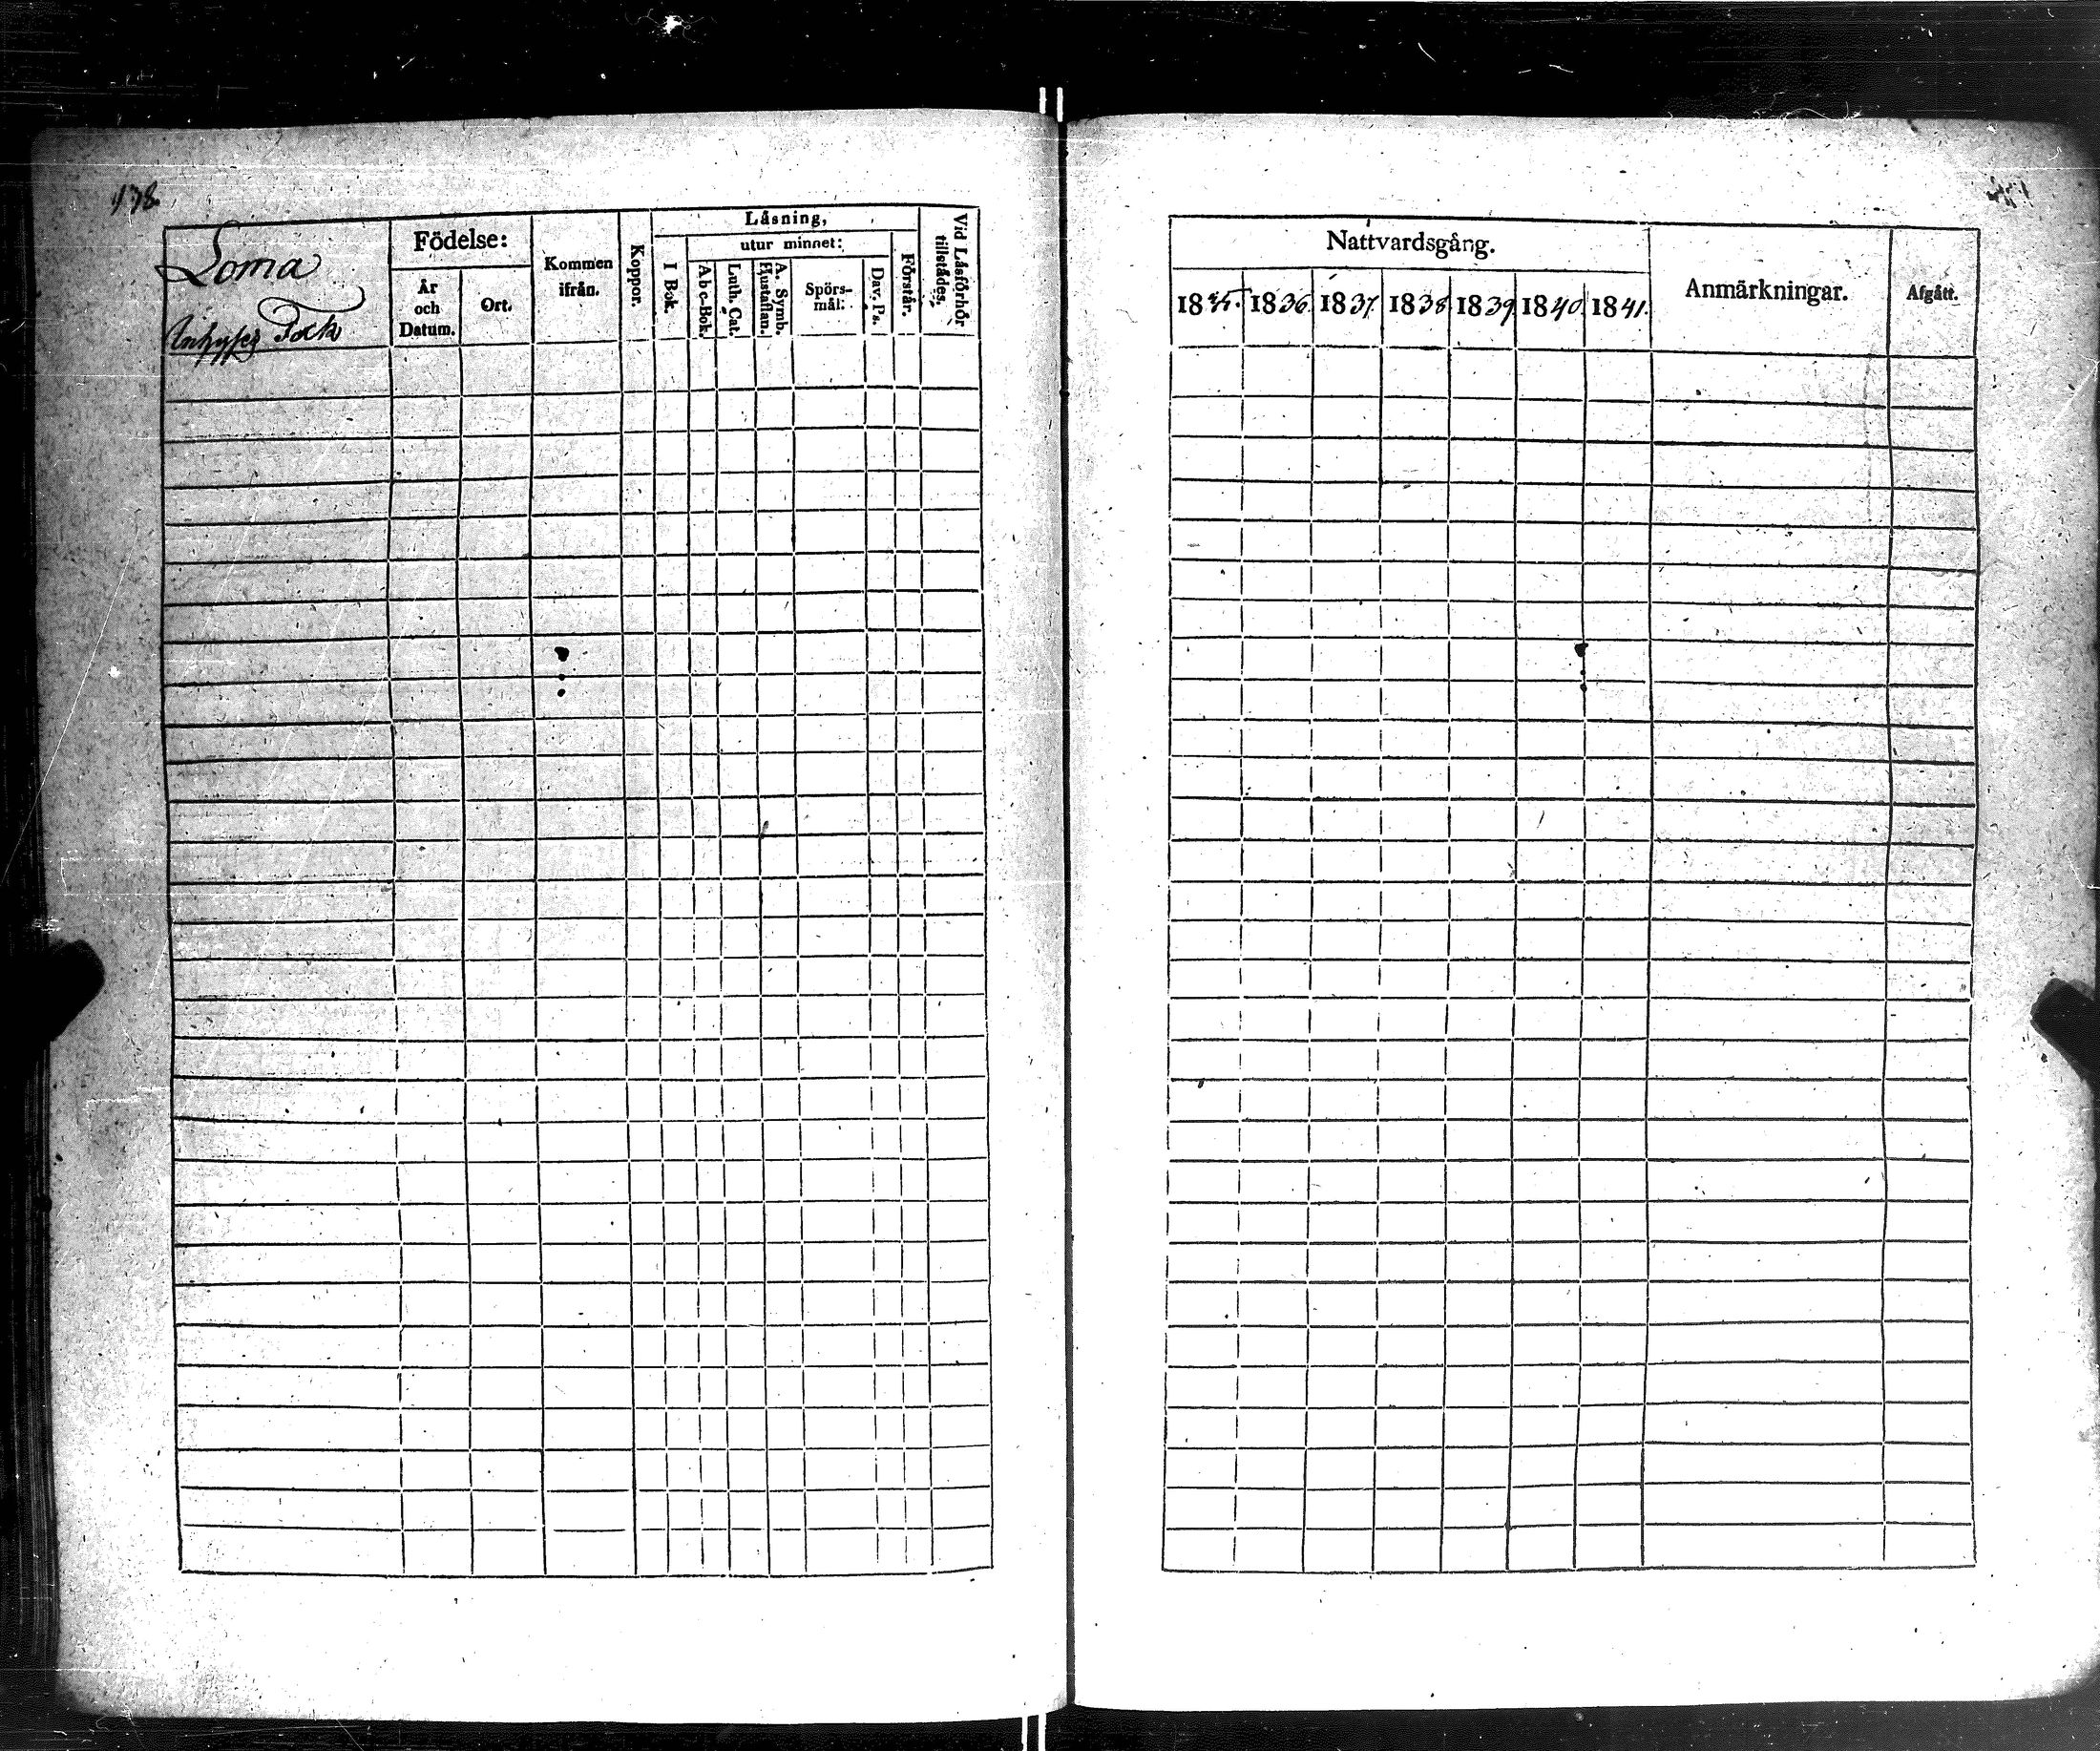 178.
Loma
Inhyses Folk
Födelse:
År och Datum.
Ort.
Kommen ifrån.
Koppor.
Läsning,
I Bok.
utur minnet:
Abc-Bok.
Luth. Cat.
A. Symb. Hustaflan.
Spörs-mål.
Dav. Ps.
Förstår.
Vid Läsförhör tillstädes.
Nattvardsgång.
1835. 1836. 1837. 1838. 1839. 1840. 1841.
Anmärkningar.
Afgått.